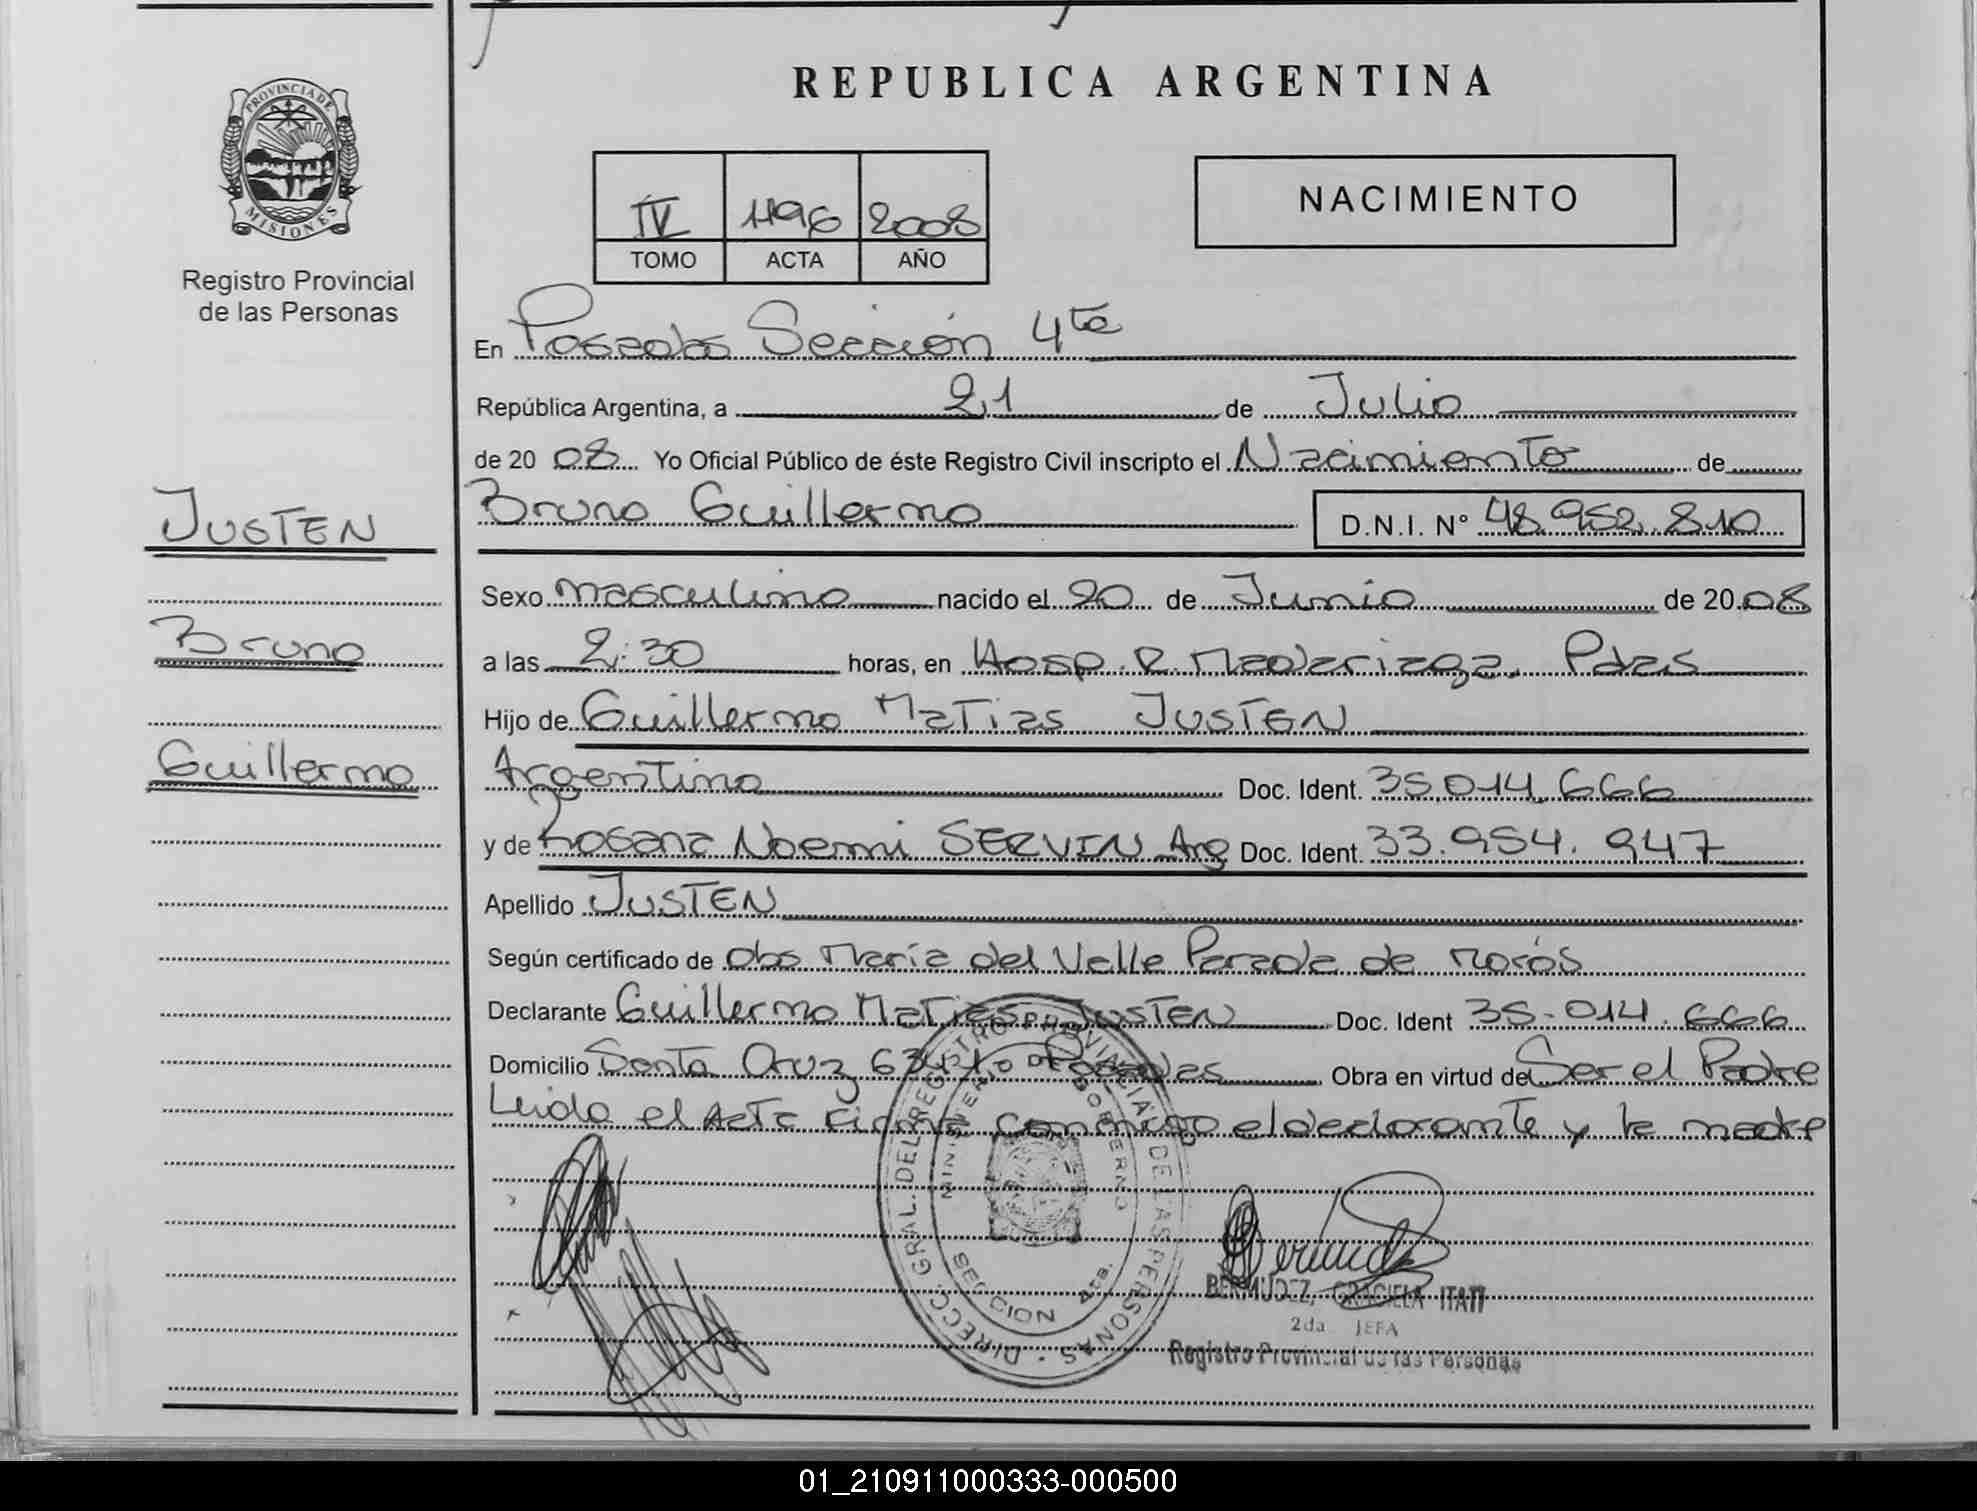 REPUBLICA ARGENTINA
PROVINCIA DE MISIONES
Registro Provincial
de las Personas
IV 1196 2008
TOMO ACTA AÑO
NACIMIENTO
En Posadas Sección 4ta
República Argentina, a 21 de Julio
de 20 08 Yo Oficial Público de éste Registro Civil inscripto el Nacimiento de
Bruno Guillermo D.N.I. N° 48.952.810
JUSTEN
Bruno
Guillermo
Sexo masculino nacido el 20 de Junio de 20 08
a las 2:30 horas, en Hosp. R. Madariaga. Pdas
Hijo de Guillermo Matias JUSTEN
Argentino Doc. Ident. 35.014.666
y de Rosana Noemi SERVIN Arg Doc. Ident. 33.954.947
Apellido JUSTEN
Según certificado de Obs María del Valle Parada de
Declarante Guillermo Matias JUSTEN Doc. Ident 35.014.666
Domicilio Santa Cruz Posadas Obra en virtud de Ser el Padre
Leida el Acta firma conmigo el declarante y la madre
DIRECC. GRAL. DEL REGISTRO PROVINCIAL DE LAS PERSONAS
MINISTERIO DE GOBIERNO
Bermudez
BERMUDEZ, GRACIELA ITATI
2da JEFA
Registro Provincial de las Personas
01_210911000333-000500